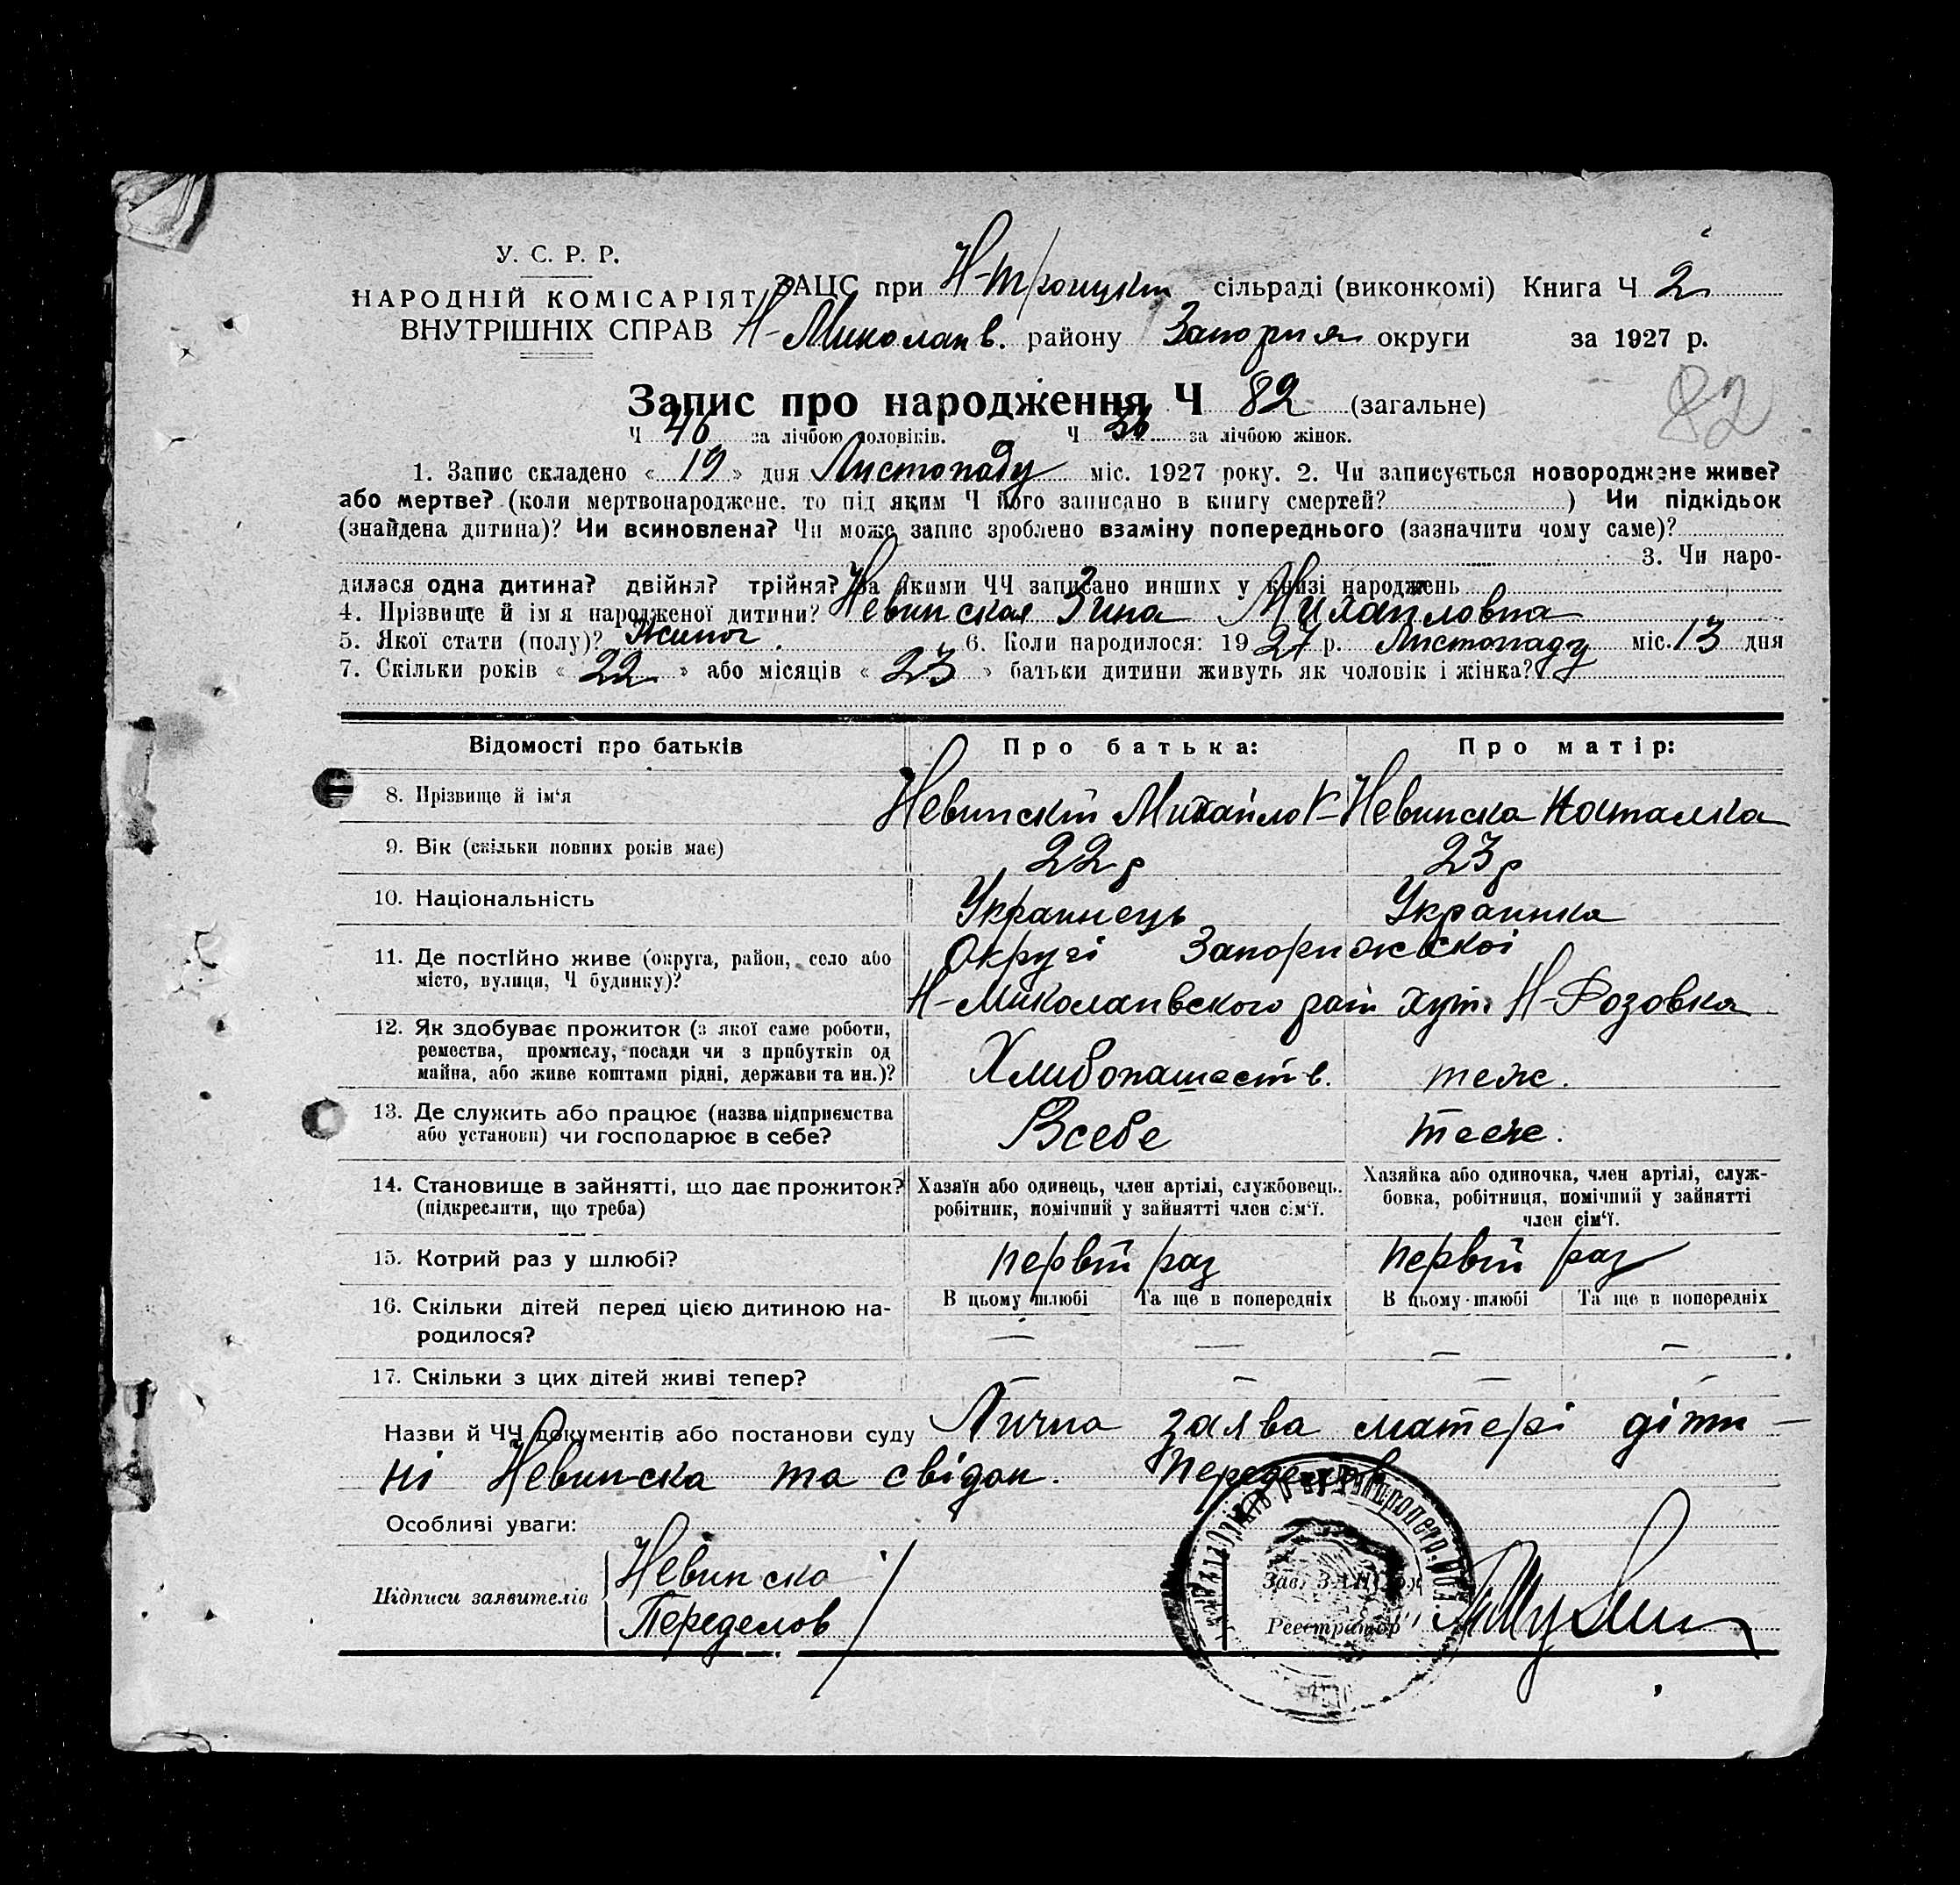 У. С. Р. Р.
НАРОДНІЙ КОМІСАРІЯТ
ВНУТРІШНІХ СПРАВ
ЗАЦС при Н-Троицкій сільраді (виконкомі) Книга Ч 2
Н-Миколаив. району Запориж округи за 1927 р.
Запис про народження Ч 82 (загальне)
82
Ч 46 за лічбою чоловіків. Ч 36 за лічбою жінок.
1. Запис складено « 19 » дня Листопаду міс. 1927 року. 2. Чи записується новороджене живе?
або мертве? (коли мертвонароджене, то під яким Ч його записано в книгу смертей? ) Чи підкідьок
(знайдена дитина)? Чи всиновлена? Чи може запис зроблено взаміну попереднього (зазначити чому саме)?
3. Чи наро-
дилася одна дитина? двійня? трійня? За якими ЧЧ записано инших у книзі народжень
4. Прізвище й ім я народженої дитини? Невинская Зина Михайловна
5. Якої стати (полу)? Жиноч. 6. Коли народилося: 1927 р. Листопаду міс. 13 дня
7. Скільки років « 22 » або місяців « 23 » батьки дитини живуть як чоловік і жінка?
Відомості про батьків Про батька: Про матір:
8. Прізвище й ім'я Невинский Михайло Невинска
9. Вік (скільки повних років має) 22 р 23 р
10. Національність Украинець Украинка
11. Де постійно живе (округа, район, село або Округі Запорижскоі
місто, вулиця, Ч будинку)? Н-Миколаивского рай хут. Н-Розовка
12. Як здобуває прожиток (з якої саме роботи,
ремества, промислу, посади чи з прибутків од
майна, або живе коштами рідні, держави та ин.)? Хлибопашеств. теж.
13. Де служить або працює (назва підприємства
або установи) чи господарює в себе? Всебе теж.
14. Становище в зайнятті, що дає прожиток? Хазяїн або одинець, член артілі, службовець. Хазяйка або одиночка, член артілі, служ-
(підкреслити, що треба) робітник, помічний у зайнятті член сім'ї. бовка, робітниця, помічний у зайнятті
член сім'ї.
15. Котрий раз у шлюбі? первій раз первій раз
16. Скільки дітей перед цією дитиною на- В цьому шлюбі Та ще в попередніх В цьому шлюбі Та ще в попередніх
родилося? — — — —
17. Скільки з цих дітей живі тепер? — — — —
Назви й ЧЧ документів або постанови суду Лична заява матері діти-
ні Невинска та свідок. Переделов
Особливі уваги:
Підписи заявителів Невинска
Переделов
Зав. ЗАЦС'ом
Реєстратор